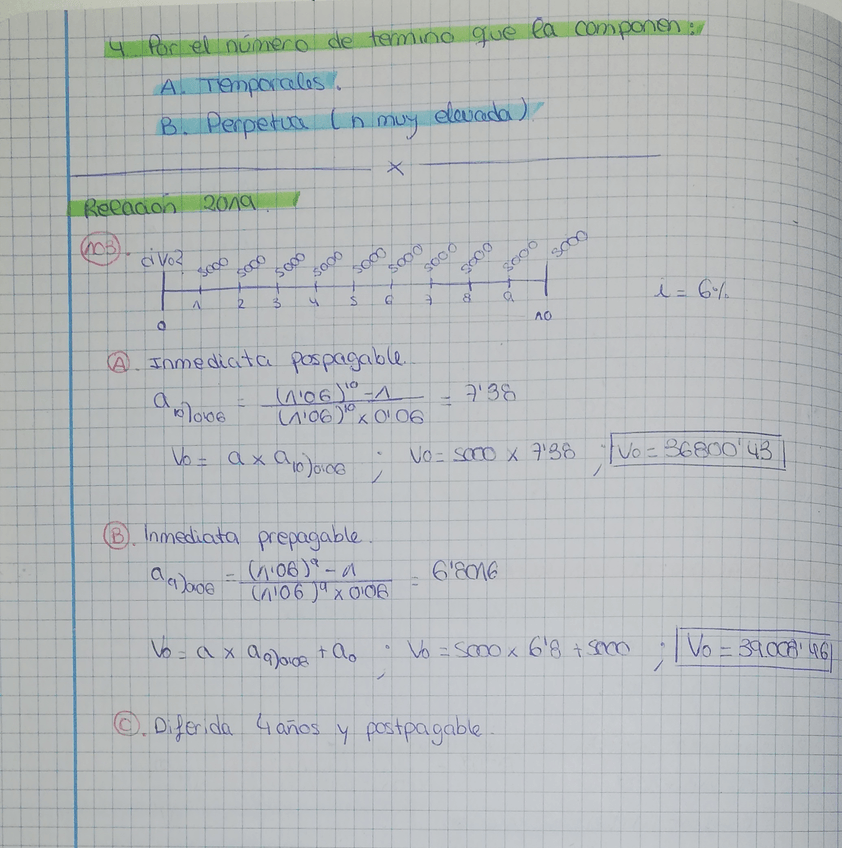 4 Por el número de termino que la componen:
A. Temporales.
B. Perpetua (n muy elevada)
x
Relación 2019
103. ¿V0? 5000 5000 5000 5000 5000 5000 5000 5000 5000 5000
0 1 2 3 4 5 6 7 8 9 10 i = 6%
A. Inmediata pospagable.
a10)0'06 = (1'06)^10 - 1 / (1'06)^10 x 0'06 = 7'38
V0 = a x a10)0'06 ; V0 = 5000 x 7'36 ; V0 = 36800'43
B. Inmediata prepagable.
a9)0'06 = (1'06)^9 - 1 / (1'06)^9 x 0'06 = 6'8016
V0 = a x a9)0'06 + a0 ; V0 = 5000 x 6'8 + 5000 ; V0 = 39.008'46
C. Diferida 4 años y postpagable.